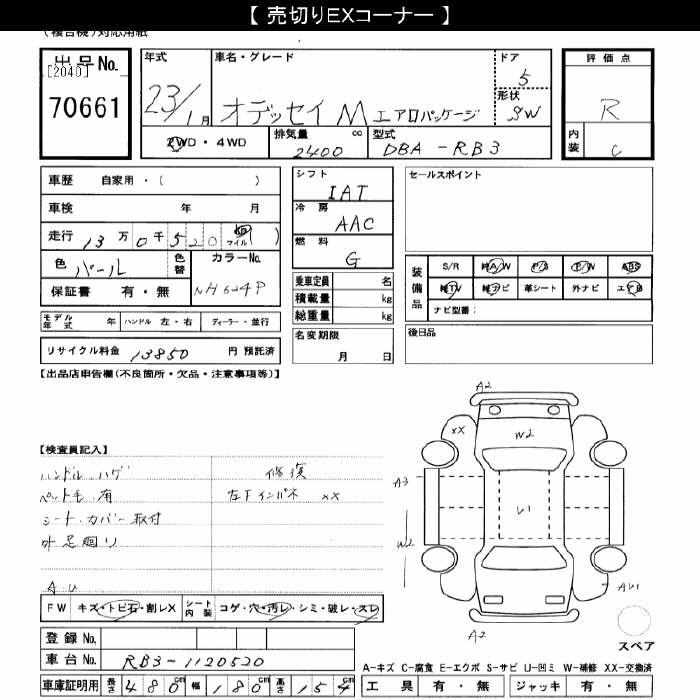 【 売切りEXコーナー 】
(複合機)対応用紙
出品No.
[2040]
70661
年式
23/1月
車名・グレード
オデッセイ M エアロパッケージ
ドア
5
形状
SW
評価点
R
内装
C
2WD・4WD
排気量 cc
2400
型式
DBA-RB3
車歴 自家用・( )
車検 年 月
走行 13万0千520 km マイル ( )
色 パール
色替
カラーNo.
NH624P
保証書 有・無
シフト
IAT
冷房
AAC
燃料
G
乗車定員 名
積載量 kg
総重量 kg
セールスポイント
装備品
S/R 純A/W P/S P/W ABS
純TV 純ナビ 革シート 外ナビ エアB
ナビ型番:
モデル年式 年 ハンドル 左・右 ディーラー・並行
名変期限
月 日
後日品
リサイクル料金 13850 円 預託済
【出品店申告欄(不良箇所・欠品・注意事項等)】
【検査員記入】
ハンドル・ハゲ
修復
ペット毛・有
左FインパネXX
シート・カバー取付
外足廻り
A.U
FW キズ・トビ石・割レX
シート内装 コゲ・穴・汚レ・シミ・破レ・スレ
登録No.
車台No. RB3-1120520
車庫証明用 長さ 480cm 幅 180cm 高さ 154cm
A2
XX
W2
A3
U1
W2
AU1
A2
スペア
A-キズ C-腐食 E-エクボ S-サビ U-凹ミ W-補修 XX-交換済
工具 有・無 ジャッキ 有・無